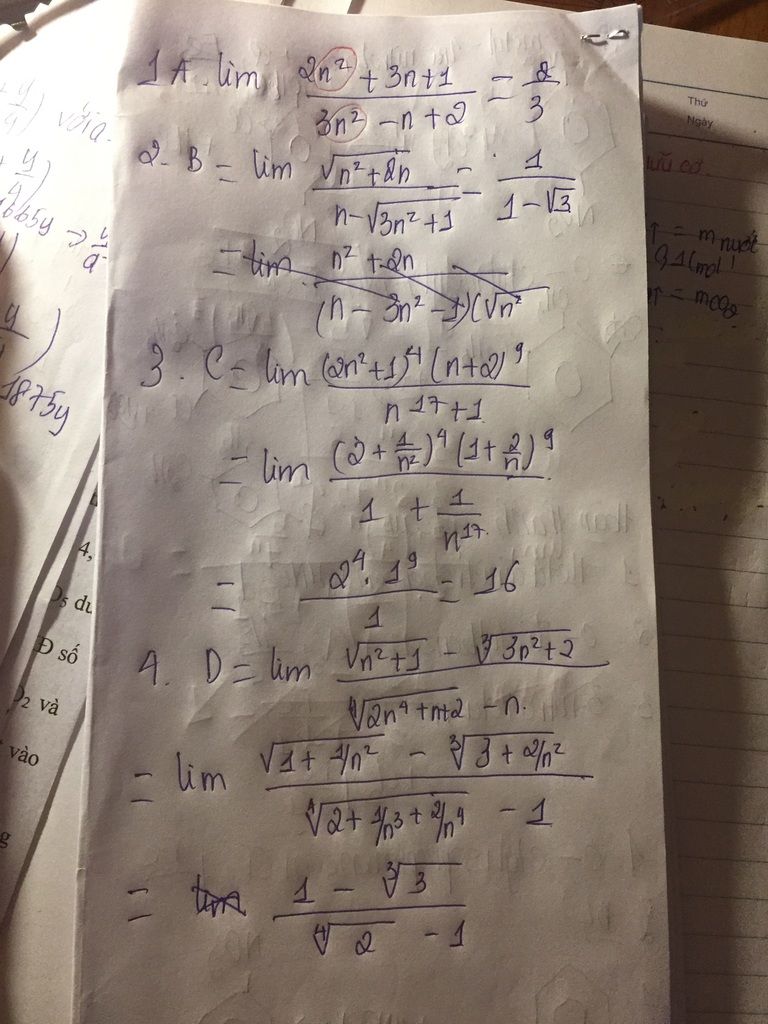 1 A. lim (2n² + 3n + 1)/(3n² - n + 2) = 2/3
2. B = lim √(n² + 2n)/(n - √(3n² + 1)) = 1/(1 - √3)
= lim (n² + 2n)/((n - 3n² - 1)(√n²
3. C = lim (2n² + 1)⁴ (n + 2)⁹/(n¹⁷ + 1)
= lim (2 + 1/n²)⁴ (1 + 2/n)⁹/(1 + 1/n¹⁷)
= 2⁴ . 1⁹/1 = 16
4. D = lim (√(n² + 1) - ∛(3n² + 2))/(∜(2n⁴ + n + 2) - n)
= lim (√(1 + 1/n²) - ∛(3 + 2/n²))/(∜(2 + 1/n³ + 2/n⁴) - 1)
= lim (1 - ∛3)/(∜2 - 1)
với a
1875y
4,
Đ số
và
vào
g
Thứ
Ngày
= m nước
0,1 (mol)